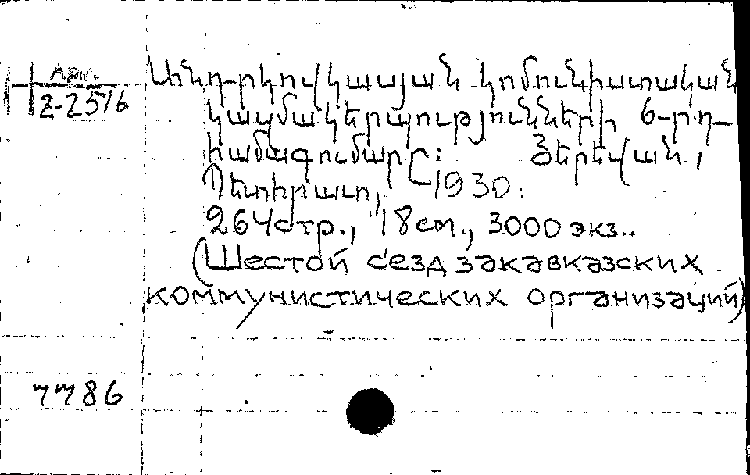 Арм.
2-2516
Անդրկովկասյան կոմունիստական
կազմակերպությունների 6-րդ
համագումարը: Յերեվան,
Պետհրատ, 1930.
264стр., 18см., 3000 экз..
(Шестой с'езд закавказских
коммунистических организаций)
7786